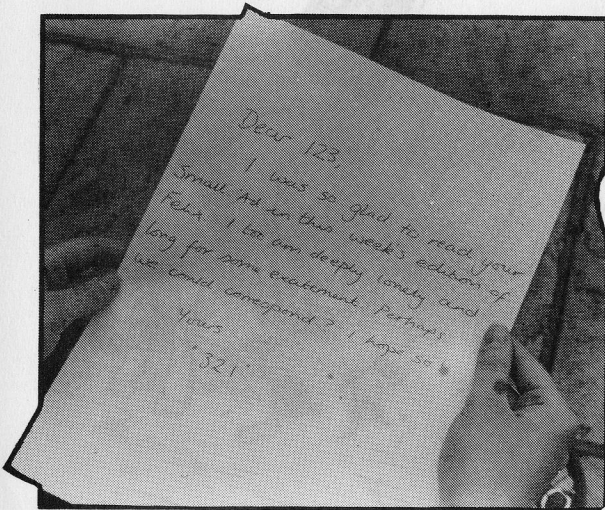 Dear 123,
I was so glad to read your
Small Ad in this week's edition of
Felix. I too am deeply lonely and
long for some excitement. Perhaps
we could correspond? I hope so
Yours
'321'